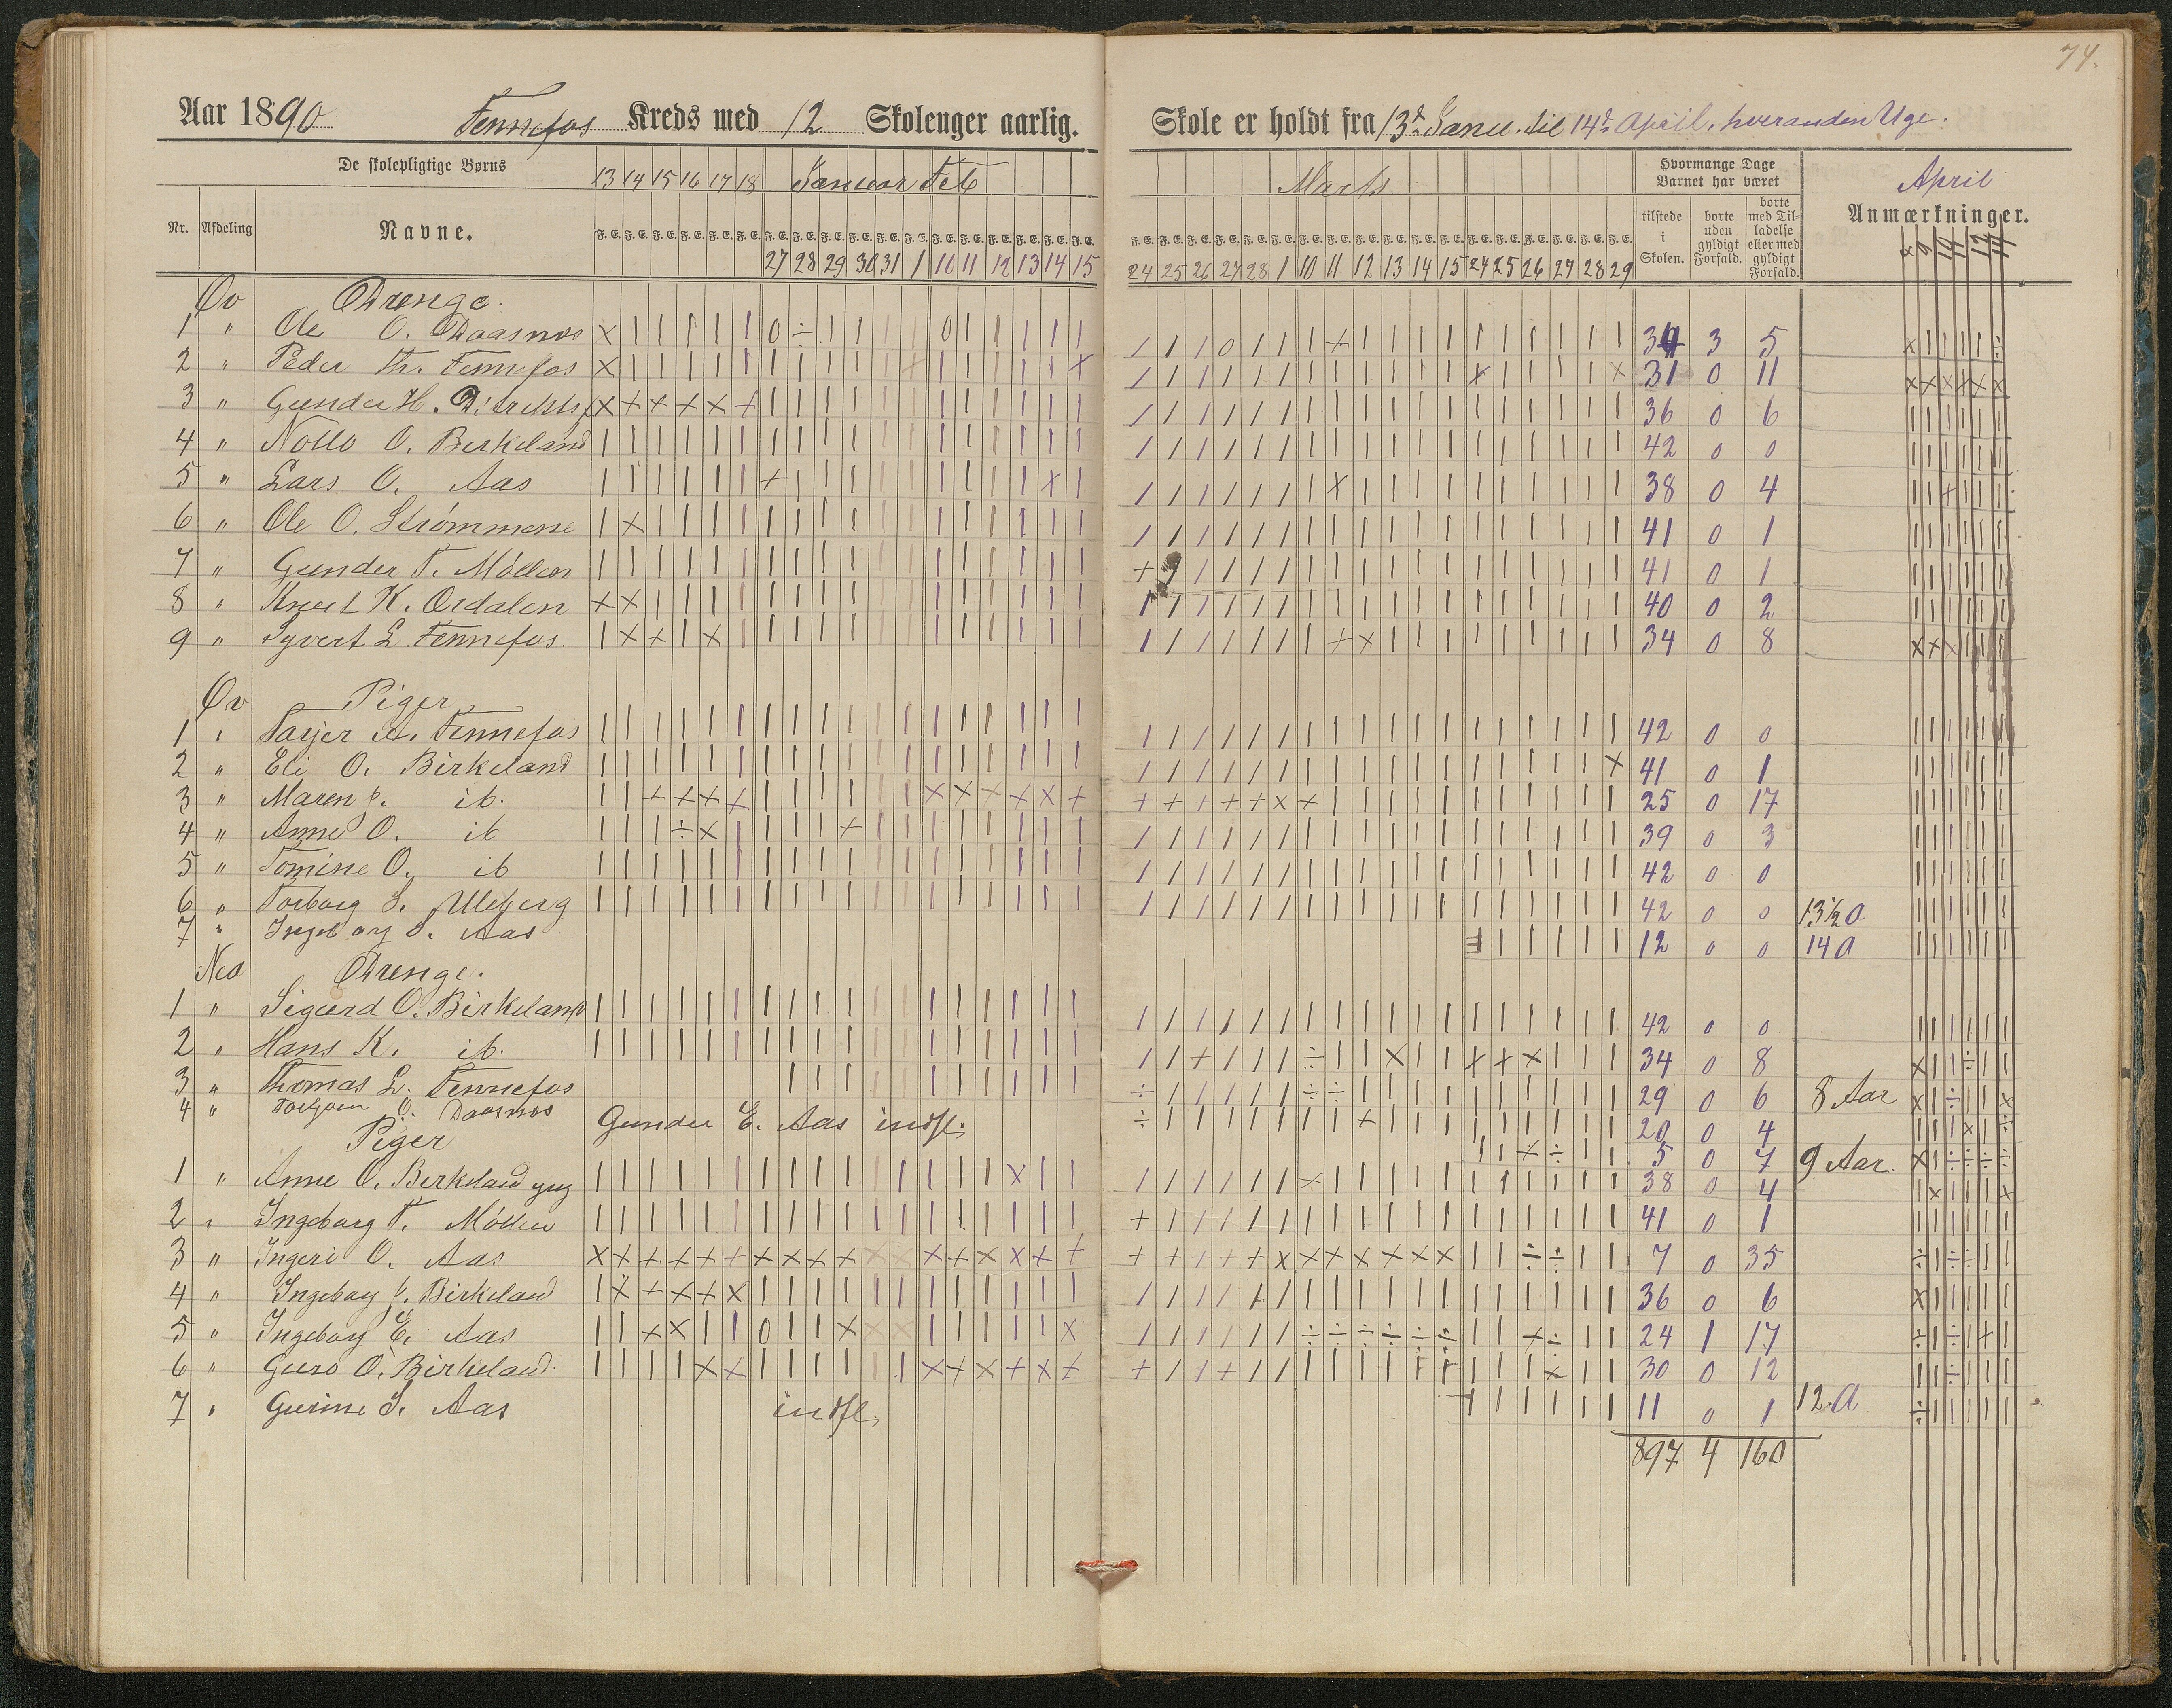 74.
Aar 1890 Fennefos Kreds med 12 Skoleuger aarlig.
Skole er holdt fra 13d Janu. til 14d April, hveranden Uge.
De skolepligtige Børns
13 14 15 16 17 18 Januar Feb
Marts
Hvormange Dage Barnet har været
April
Nr. Afdeling Navne.
27 28 29 30 31 1 10 11 12 13 14 15
24 25 26 27 28 1 10 11 12 13 14 15 24 25 26 27 28 29
tilstede i Skolen.
borte uden gyldigt Forfald.
borte med Tilladelse eller med gyldigt Forfald.
Anmærkninger.
8 9 10 11 12 14
Øv Drenge.
1 " Ole O. Daasnes 34 3 5
2 " Peder Th. Fennefos 31 0 11
3 " Gunder H. 36 0 6
4 " O. Birkeland 42 0 0
5 " Lars O. Aas 38 0 4
6 " Ole O. Strømmene 41 0 1
7 " Gunder T. Möllen 41 0 1
8 " Knut K. Ordalen 40 0 2
9 " Syvert L. Fennefos. 34 0 8
Øv Piger
1 " Fennefos 42 0 0
2 " Eli O. Birkeland 41 0 1
3 " Maren J. ib. 25 0 17
4 " Anne O. ib 39 0 3
5 " Tomine O. ib 42 0 0
6 " Torborg S. Uleberg 42 0 0 13½ a
7 " Ingeborg S. Aas 12 0 0 14 a
Ned Drenge.
1 " Sigurd O. Birkeland 42 0 0
2 " Hans K. ib. 34 0 8
3 " Thomas L. Fennefos 29 0 6 8 Aar
4 " O. Daasnes 20 0 4
Gunder E. Aas indfl. 5 0 7 9 Aar.
Piger
1 " Anne O. Birkeland yng 38 0 4
2 " Ingeborg T. Möllen 41 0 1
3 " Ingeri O. Aas 7 0 35
4 " Ingeborg J. Birkeland 36 0 6
5 " Ingeborg E. Aas 24 1 17
6 " Guro O. Birkeland. 30 0 12
7 " Gurine S. Aas indfl. 11 0 1 12. a
897 4 160